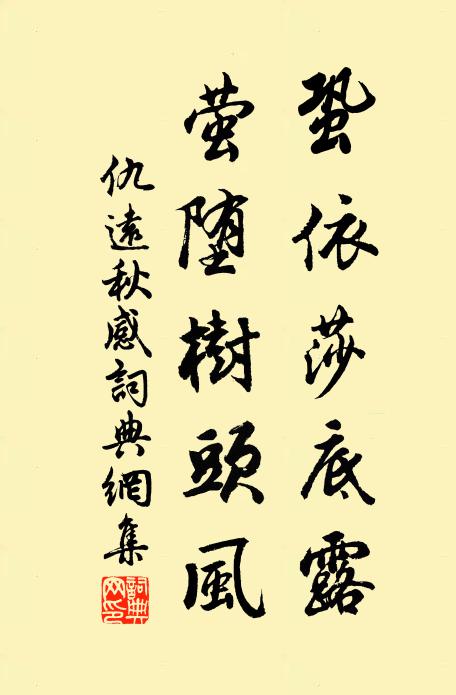 蛩依莎底露
萤堕樹頭風
仇遠秋感詞典網集
詞典網印